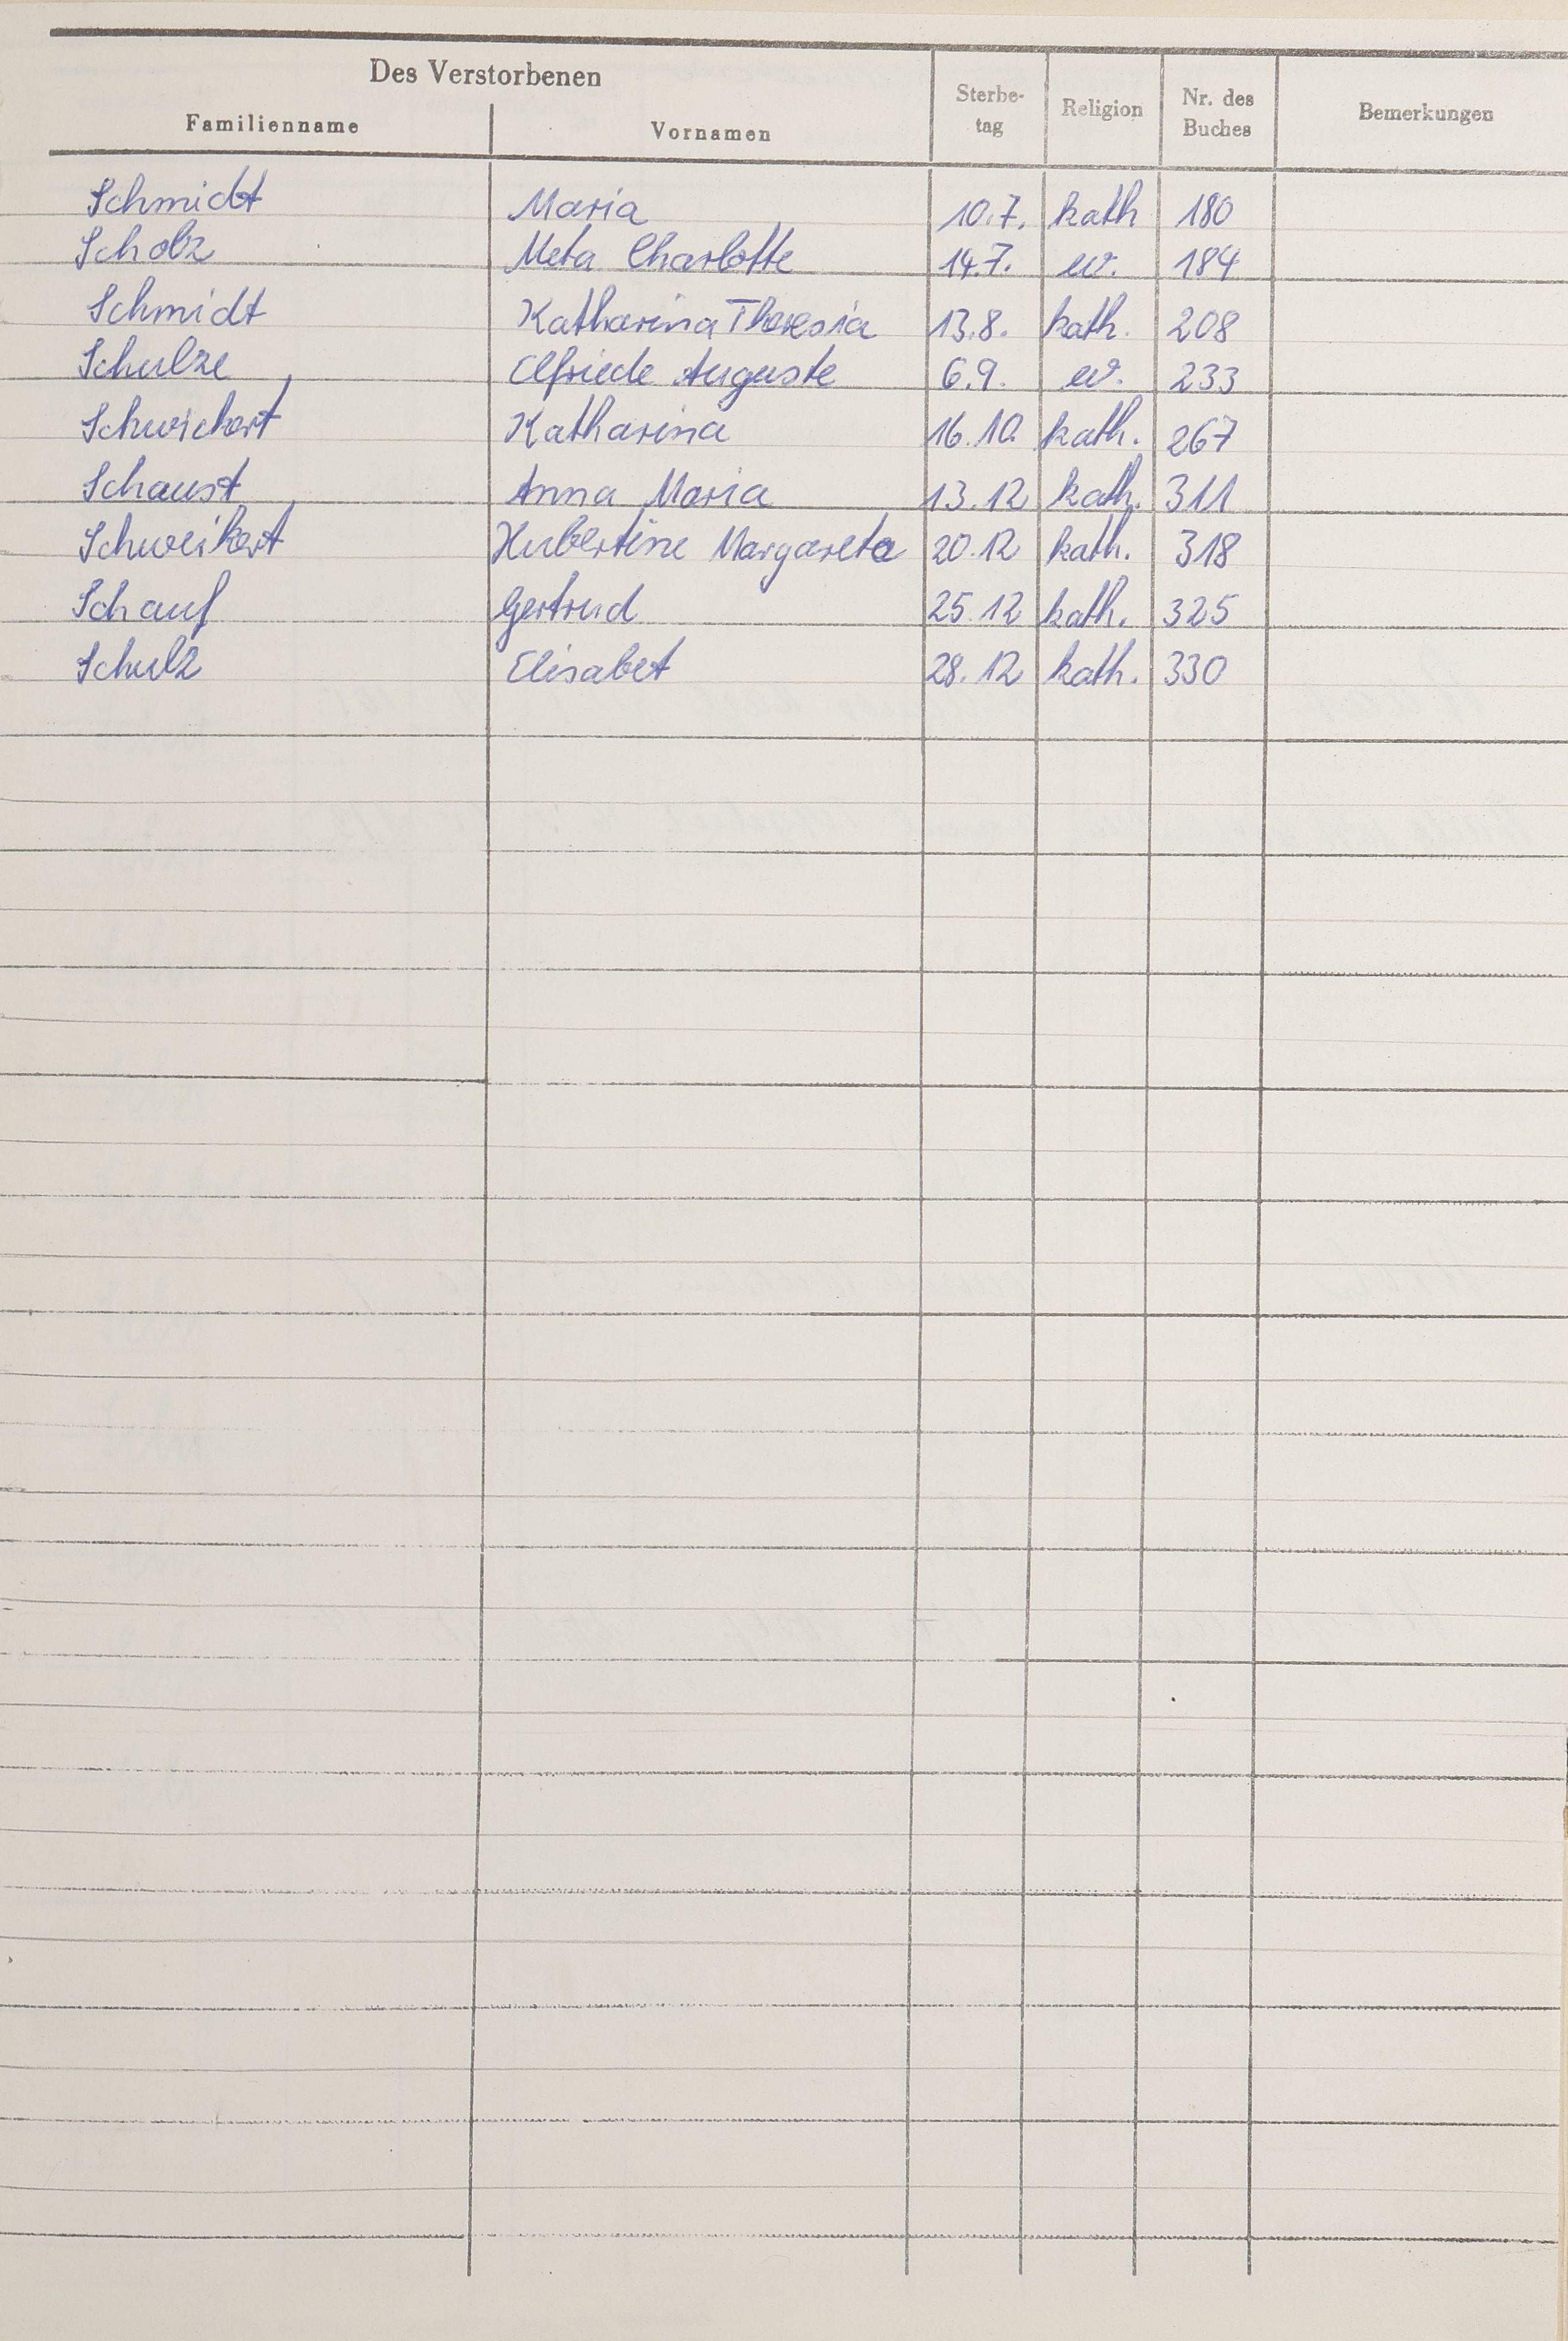 Des Verstorbenen
Familienname Vornamen Sterbe- tag Religion Nr. des Buches Bemerkungen
Schmidt Maria 10.7. kath 180
Scholz Meta Charlotte 14.7. ev. 184
Schmidt Katharina Theresia 13.8. kath. 208
Schulze Elfriede Auguste 6.9. ev. 233
Schwickert Katharina 16.10. kath. 267
Schaust Anna Maria 13.12 kath. 311
Schweikert Hubertine Margareta 20.12 kath. 318
Schauf Gertrud 25.12 kath. 325
Schulz Elisabet 28.12 kath. 330